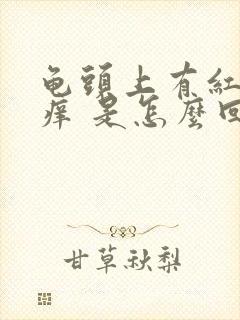 龟頭上有紅
痒 是怎麼回
甘草秋梨